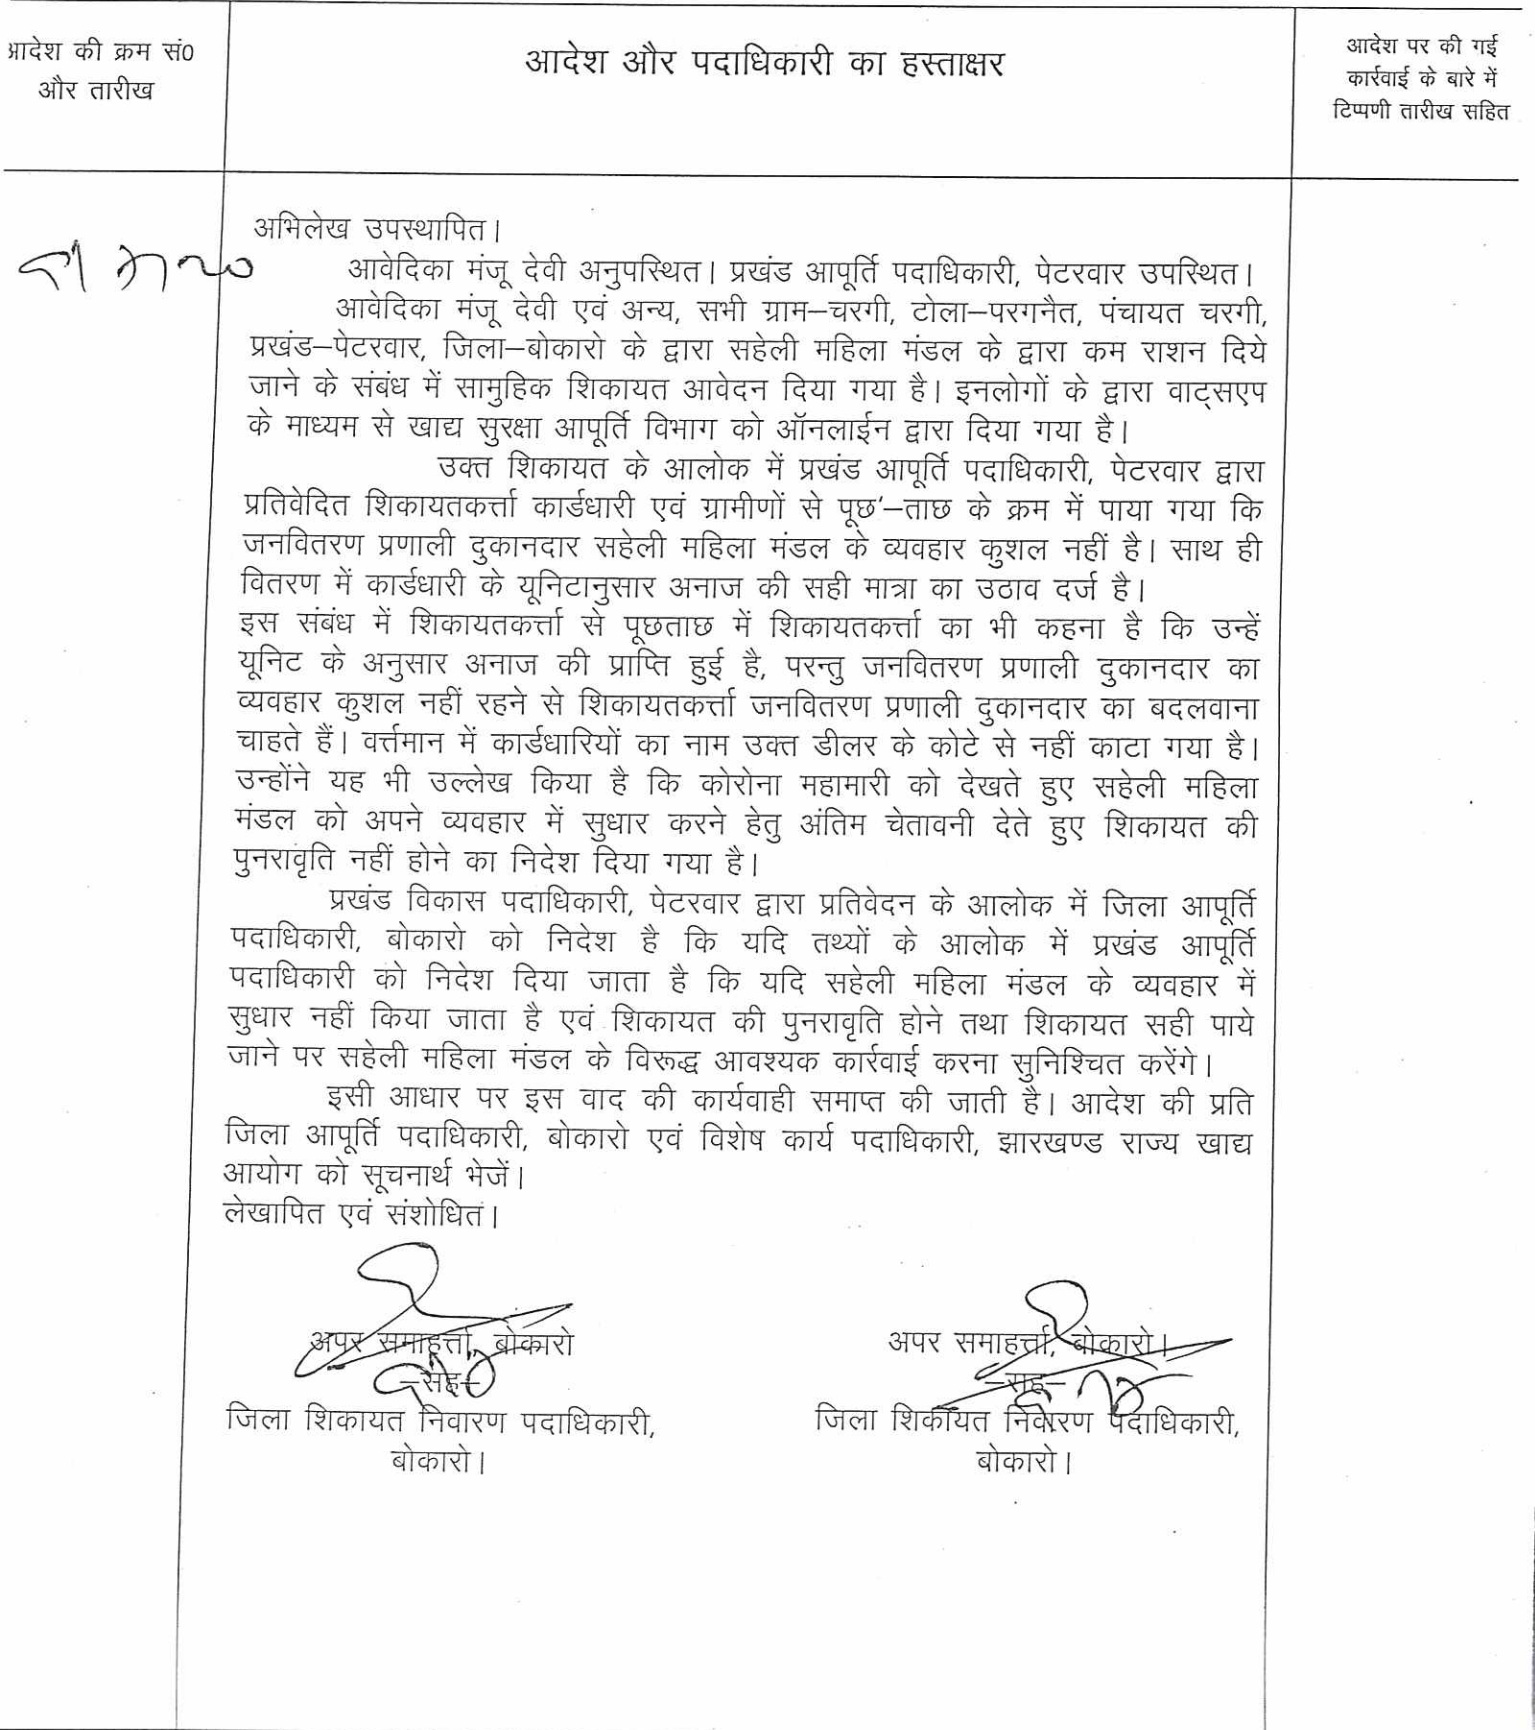 आदेश की क्रम सं0
और तारीख
आदेश और पदाधिकारी का हस्ताक्षर
आदेश पर की गई
कार्रवाई के बारे में
टिप्पणी तारीख सहित
अभिलेख उपस्थापित।
आवेदिका मंजू देवी अनुपस्थित। प्रखंड आपूर्ति पदाधिकारी, पेटरवार उपस्थित।
आवेदिका मंजू देवी एवं अन्य, सभी ग्राम–चरगी, टोला–परगनैत, पंचायत चरगी,
प्रखंड–पेटरवार, जिला–बोकारो के द्वारा सहेली महिला मंडल के द्वारा कम राशन दिये
जाने के संबंध में सामुहिक शिकायत आवेदन दिया गया है। इनलोगों के द्वारा वाट्सएप
के माध्यम से खाद्य सुरक्षा आपूर्ति विभाग को ऑनलाईन द्वारा दिया गया है।
उक्त शिकायत के आलोक में प्रखंड आपूर्ति पदाधिकारी, पेटरवार द्वारा
प्रतिवेदित शिकायतकर्त्ता कार्डधारी एवं ग्रामीणों से पूछ'–ताछ के क्रम में पाया गया कि
जनवितरण प्रणाली दुकानदार सहेली महिला मंडल के व्यवहार कुशल नहीं है। साथ ही
वितरण में कार्डधारी के यूनिटानुसार अनाज की सही मात्रा का उठाव दर्ज है।
इस संबंध में शिकायतकर्त्ता से पूछताछ में शिकायतकर्त्ता का भी कहना है कि उन्हें
यूनिट के अनुसार अनाज की प्राप्ति हुई है, परन्तु जनवितरण प्रणाली दुकानदार का
व्यवहार कुशल नहीं रहने से शिकायतकर्त्ता जनवितरण प्रणाली दुकानदार का बदलवाना
चाहते हैं। वर्त्तमान में कार्डधारियों का नाम उक्त डीलर के कोटे से नहीं काटा गया है।
उन्होंने यह भी उल्लेख किया है कि कोरोना महामारी को देखते हुए सहेली महिला
मंडल को अपने व्यवहार में सुधार करने हेतु अंतिम चेतावनी देते हुए शिकायत की
पुनरावृति नहीं होने का निदेश दिया गया है।
प्रखंड विकास पदाधिकारी, पेटरवार द्वारा प्रतिवेदन के आलोक में जिला आपूर्ति
पदाधिकारी, बोकारो को निदेश है कि यदि तथ्यों के आलोक में प्रखंड आपूर्ति
पदाधिकारी को निदेश दिया जाता है कि यदि सहेली महिला मंडल के व्यवहार में
सुधार नहीं किया जाता है एवं शिकायत की पुनरावृति होने तथा शिकायत सही पाये
जाने पर सहेली महिला मंडल के विरूद्ध आवश्यक कार्रवाई करना सुनिश्चित करेंगे।
इसी आधार पर इस वाद की कार्यवाही समाप्त की जाती है। आदेश की प्रति
जिला आपूर्ति पदाधिकारी, बोकारो एवं विशेष कार्य पदाधिकारी, झारखण्ड राज्य खाद्य
आयोग को सूचनार्थ भेजें।
लेखापित एवं संशोधित।
अपर समाहर्त्ता, बोकारो
–सह–
जिला शिकायत निवारण पदाधिकारी,
बोकारो।
अपर समाहर्त्ता, बोकारो।
–सह–
जिला शिकायत निवारण पदाधिकारी,
बोकारो।